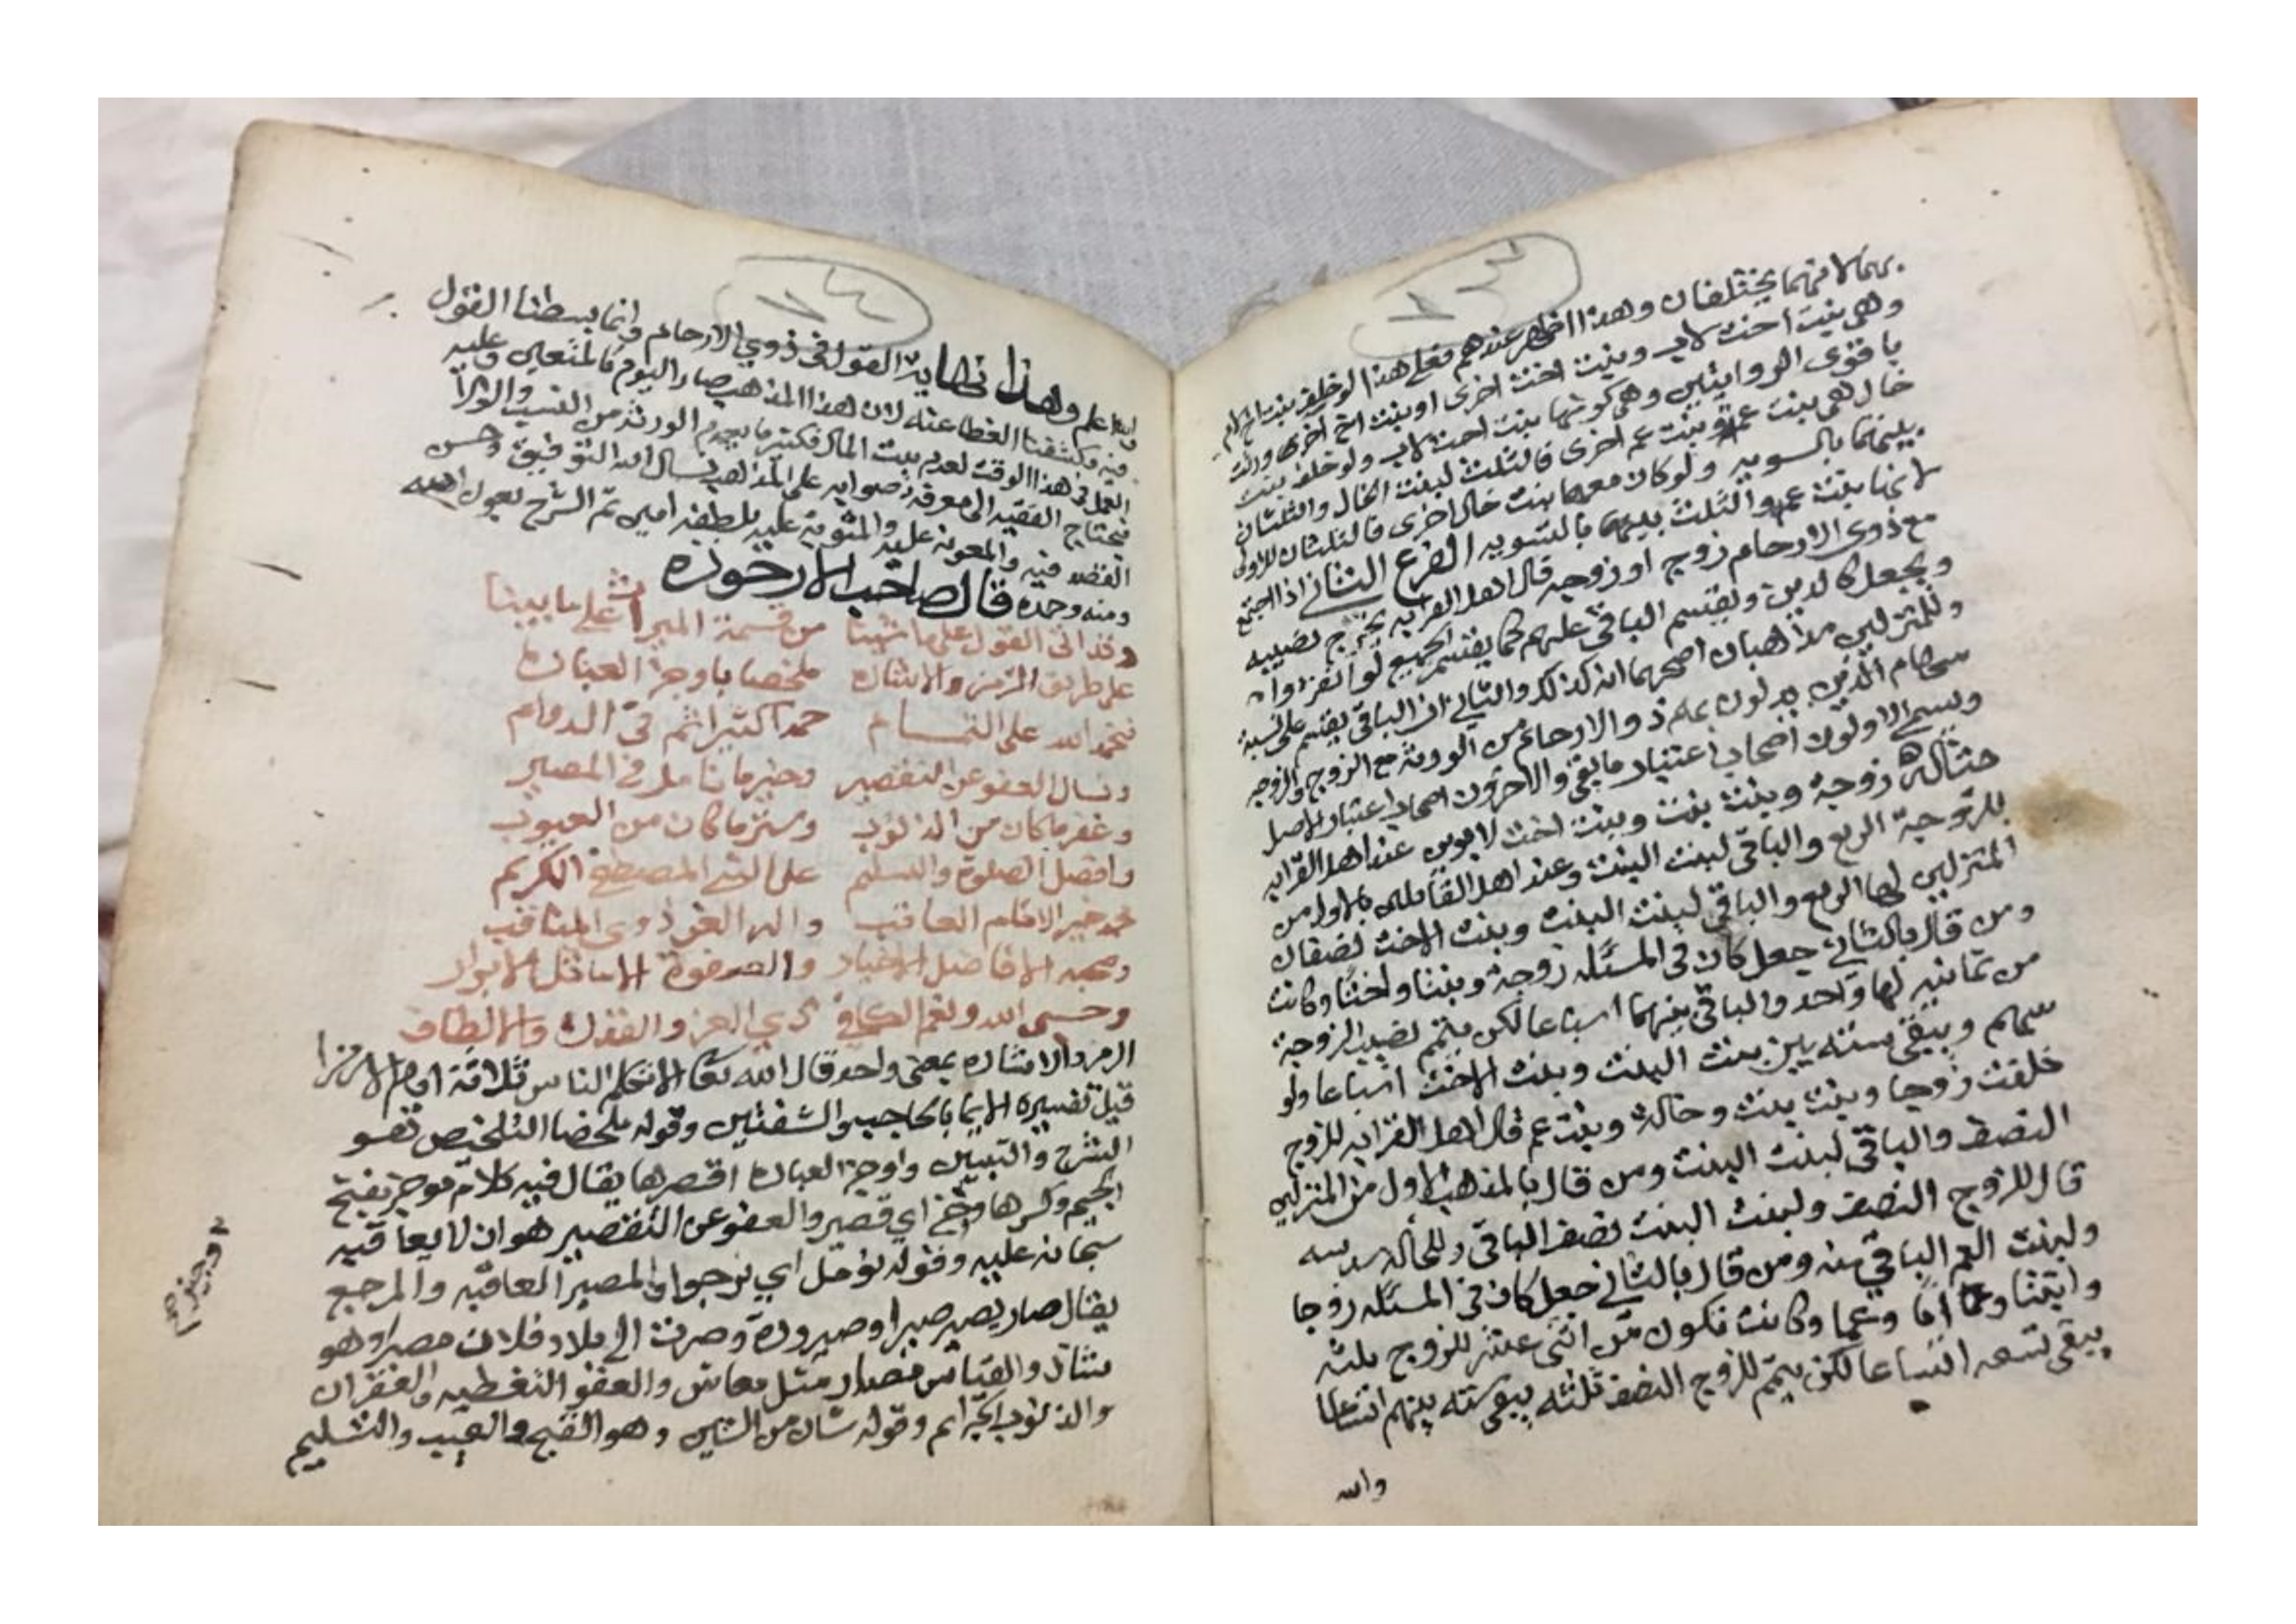 بهما لانهما يختلفان وهذا اظهر عندهم فعلى هذا لو خلف بنت اخ لام
وهي بنت اخت لاب وبنت اخت اخرى او بنت اخ اخرى ورثت
باقوى القرابتين وهي كونها بنت اخت لاب ولو خلف بنت
خال هي بنت عمة وبنت عم اخرى فالثلث لبنت الخال والثلثان
بينهما بالسويه ولو كان معهما بنت خال اخرى فالثلثان للاولى
لانها بنت عم والثلث بينهما بالسويه الفرع الثاني اذا اجتمع
مع ذوي الارحام زوج او زوجه قال اهل القرابه يخرج نصيبه
ويجعل كالدين ويقسم الباقي عليهم كما يقسم الجميع لو انفردوا
وللمنزلين مذهبان اصحهما انه كذلك والثاني ان الباقي يقسم على نسبة
سهام الذين يدلون بهم ذوالارحام من الورثه مع الزوج والزوجه
ويسمى الاولون اصحاب اعتبار ما بقى والاخرون اصحاب اعتبار الاصل
مثاله زوجة وبنت بنت وبنت اخت لابوين عند اهل القرابه
للزوجة الربع والباقي لبنت البنت وعند اهل القايلين بالاول من
المنزلين لها الربع والباقي لبنت البنت وبنت الاخت نصفان
ومن قال بالثاني جعل كان في المسئله زوجة وبنتا واختا وكانت
من ثمانيه لها واحد والباقي بينهما اسباعا لكن يتمم نصيب الزوجة
سهم ويبقى سته بين بنت البنت وبنت الاخت اسباعا ولو
خلفت زوجا وبنت بنت وخالة وبنت عم قال اهل القرابه للزوج
النصف والباقي لبنت البنت ومن قال بالمذهب الاول من المنزلين
قال للزوج النصف ولبنت البنت نصف الباقي وللخاله سدسه
ولبنت العم الباقي منه ومن قال بالثاني جعل كان في المسئله زوجا
وابنتا واما وعما وكانت فكون من اثنى عشر للزوج ثلثه
يبقى تسعه اتساعا لكن يتمم للزوج النصف ثلثه يبقى سته بينهم اتساعا
والله
والله اعلم وهذا نهاية القول في ذوي الارحام وانما بسطنا القول
فيه وكشفنا الغطا عنه لان هذا المذهب صار اليوم كالمتعين وعليه
العمل في هذا الوقت لعدم بيت المال فكثير ما يعدم الورثه من النسب والولاء
فيحتاج الفقيه الى معرفة صوابه على المذاهب نسال الله التوفيق وحسن
القصد فيه والمعونه عليه والمثوبة عليه بلطفه امين تم الشرح بعون الله
ومنه وحده قال صاحب الارجوزه
وقد اتى القول على ما شينا من قسمة الميراث على ما بينا
على طريق الرمز والاشاره ملخصا باوجز العباره
فنحمد الله على التمام حمدا كثيرا تم في الدوام
ونسال العفو عن التقصير وخير ما نامل في المصير
وغفر ما كان من الذنوب وستر ما كان من العيوب
وافضل الصلوة والتسليم على النبي المصطفى الكريم
محمد خير الانام العاقب واله الغر ذوي المناقب
وصحبه الافاضل الاخيار والصفوة الاماثل الابرار
وحسبي الله ونعم الكافي ذي العز والقدرة والالطاف
الرمز والاشاره بمعنى واحد قال الله تعالى الا تكلم الناس ثلاثة ايام الا رمزا
قيل تفسيره الايما بالحاجب والشفتين وقوله ملخصا التلخيص هو
الشرح والتبيين واوجز العباره اقصرها يقال فيه كلام موجز بفتح
الجيم وكسرها اي قصير والعفو عن التقصير هو ان لا يعاقبه
سبحانه عليه وقوله نومل اي نرجوا والمصير العاقبه والمرجع
يقال صار يصير صيرا وصيرورة وصرت الى فلان مصيرا وهو
شاذ والقياس مصار مثل معاش والعفو التغطيه والغفران
والذنوب الجرائم وقوله شان من الشين وهو القبح والعيب والتسليم